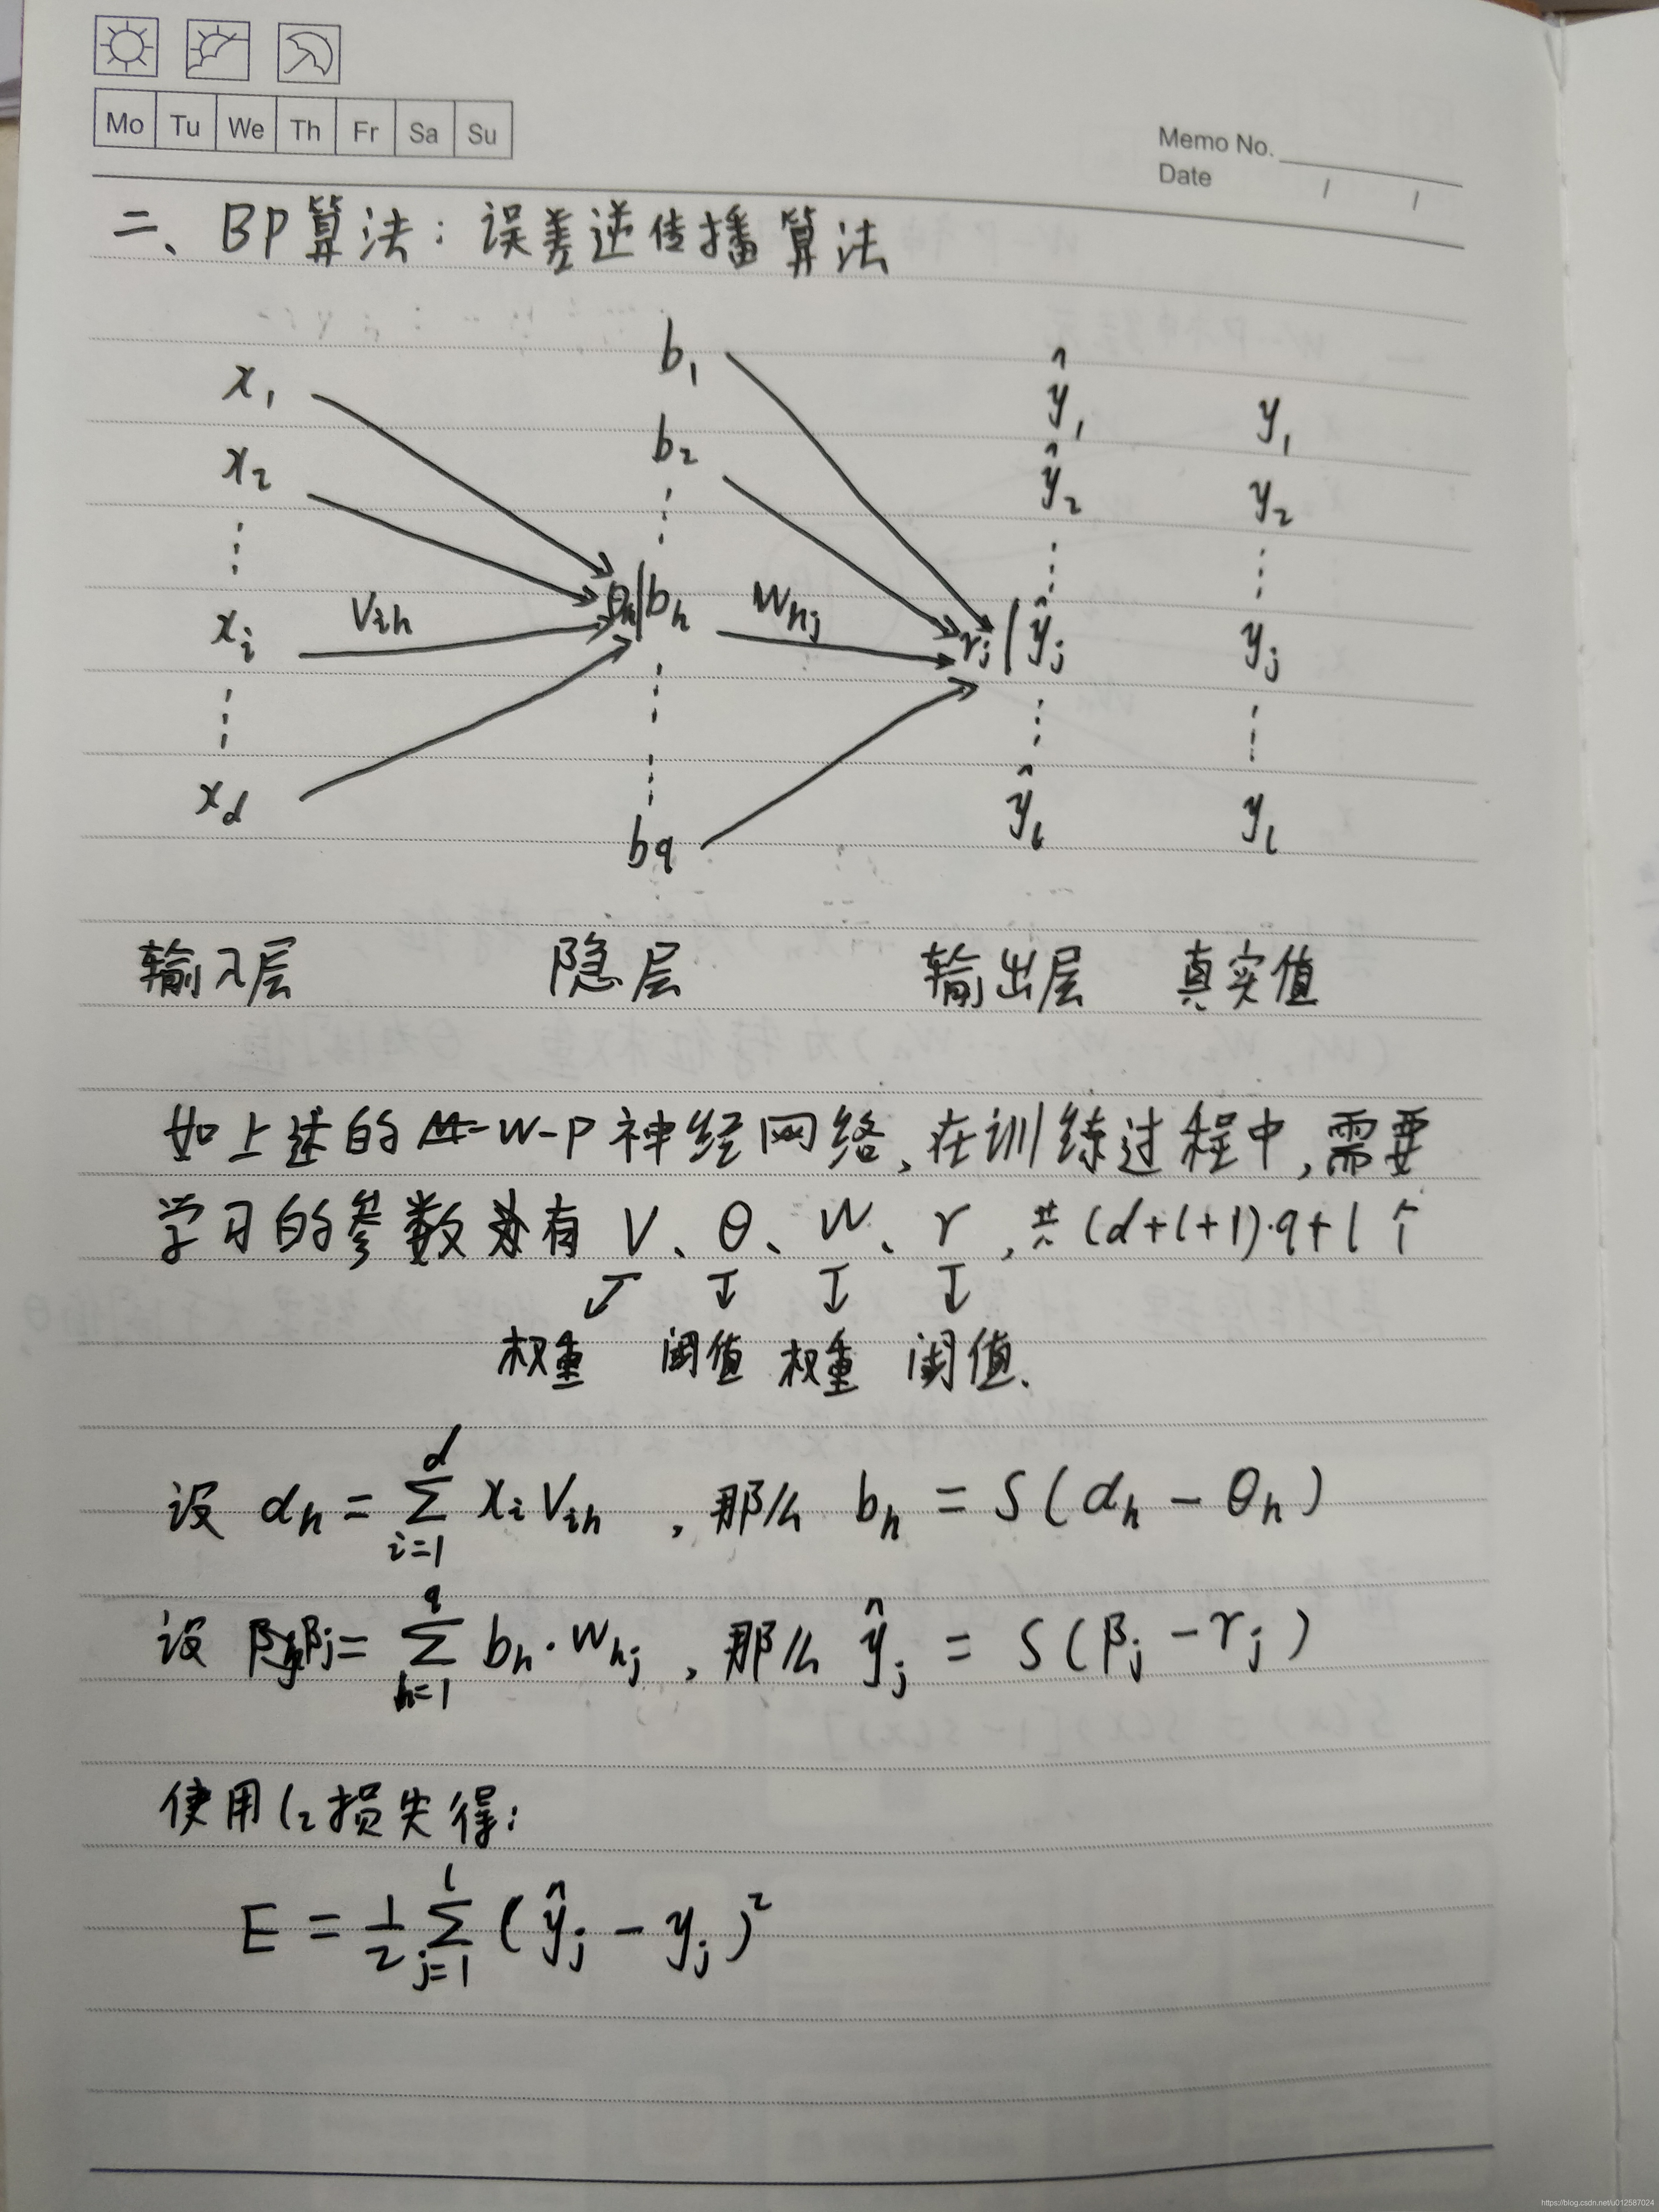 Mo Tu We Th Fr Sa Su
Memo No.
Date / /
二、BP算法：误差逆传播算法
b₁
x₁ ŷ₁ y₁
b₂
x₂ ŷ₂ y₂
xᵢ Vᵢₕ θₕ|bₕ Wₕⱼ rⱼ|ŷⱼ yⱼ
x_d ŷ_l y_l
b_q
输入层 隐层 输出层 真实值
如上述的 W-P神经网络,在训练过程中,需要
学习的参数有 V、θ、W、r,共(d+l+1)·q+l个
权重 阈值 权重 阈值.
设 αₕ = Σ_{i=1}^{d} xᵢVᵢₕ ,那么 bₕ = S(αₕ - θₕ)
设 βⱼ = Σ_{h=1}^{q} bₕ·Wₕⱼ ,那么 ŷⱼ = S(βⱼ - rⱼ)
使用l₂损失得:
E = 1/2 Σ_{j=1}^{l} (ŷⱼ - yⱼ)²
https://blog.csdn.net/u012587024